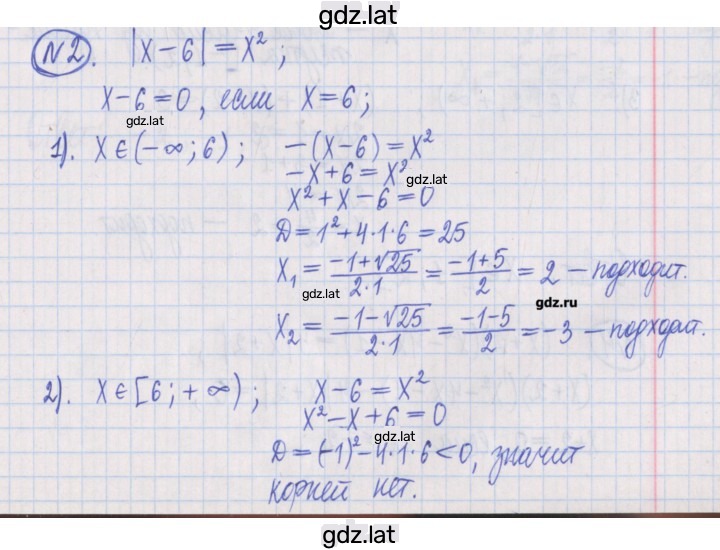 gdz.lat
№2. |x-6| = x²;
x-6=0, если x=6;
gdz.lat
1). x∈(-∞;6); -(x-6)=x²
-x+6=x²
gdz.lat
x²+x-6=0
D=1²+4·1·6=25
x₁ = (-1+√25)/(2·1) = (-1+5)/2 = 2 – подходит.
gdz.lat
gdz.ru
x₂ = (-1-√25)/(2·1) = (-1-5)/2 = -3 – подходит.
2). x∈[6;+∞); x-6=x²
x²-x+6=0
gdz.lat
D=(-1)²-4·1·6<0, значит
корней нет.
gdz.lat